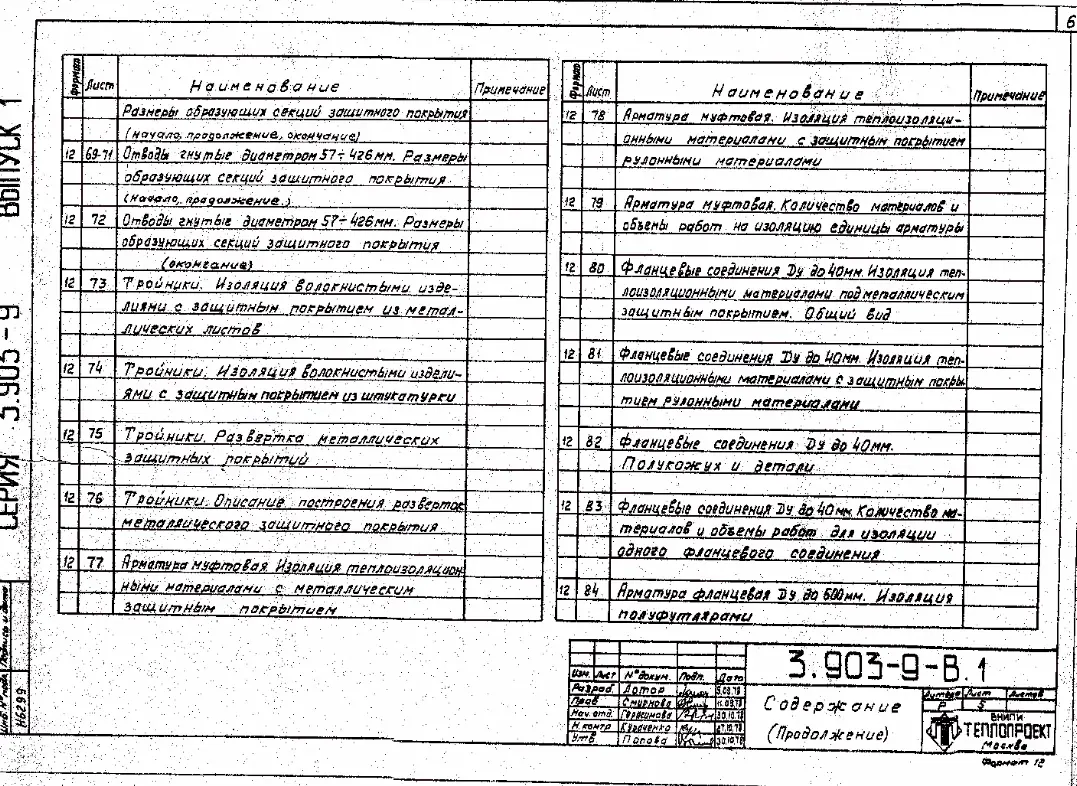 6
СЕРИЯ 3.903-9 ВЫПУСК 1
Формат Лист Наименование Примечание
Размеры образующих секций защитного покрытия
(начало, продолжение, окончание)
12 69-71 Отводы гнутые диаметром 57÷426мм. Размеры
образующих секций защитного покрытия
(начало, продолжение.)
12 72 Отводы гнутые диаметром 57÷426мм. Размеры
образующих секций защитного покрытия
(окончание)
12 73 Тройники. Изоляция волокнистыми изде-
лиями с защитным покрытием из метал-
лических листов
12 74 Тройники. Изоляция волокнистыми издели-
ями с защитным покрытием из штукатурки
12 75 Тройники. Развертка металлических
защитных покрытий
12 76 Тройники. Описание построения разверток
металлического защитного покрытия
12 77 Арматура муфтовая Изоляция теплоизоляцион-
ными материалами с металлическим
защитным покрытием
Формат Лист Наименование Примечание
12 78 Арматура муфтовая. Изоляция теплоизоляци-
онными материалами с защитным покрытием
рулонными материалами
12 79 Арматура муфтовая. Количество материалов и
объемы работ на изоляцию единицы арматуры
12 80 Фланцевые соединения Dу до 40мм. Изоляция теп-
лоизоляционными материалами под металлическим
защитным покрытием. Общий вид
12 81 Фланцевые соединения Dу до 40мм. Изоляция теп-
лоизоляционными материалами с защитным покры-
тием рулонными материалами
12 82 Фланцевые соединения Dу до 40мм.
Полукожух и детали
12 83 Фланцевые соединения Dу до 40мм. Количество ма-
териалов и объемы работ для изоляции
одного фланцевого соединения
12 84 Арматура фланцевая Dу до 600мм. Изоляция
полуфутлярами
Изм. Лист № докум. Подп. Дата
Разраб. Лотор
Пров Смирнова
Нач. отд. Герасимова 30.10.78
Н.контр Кураченко
Утв Попова 30.10.78
3.903-9-В.1
Содержание
(Продолжение)
Литера Лист Листов
Р 5
ВНИПИ
ТЕПЛОПРОЕКТ
Москва
Формат 12
Инв. № подл. Подпись и дата
116299